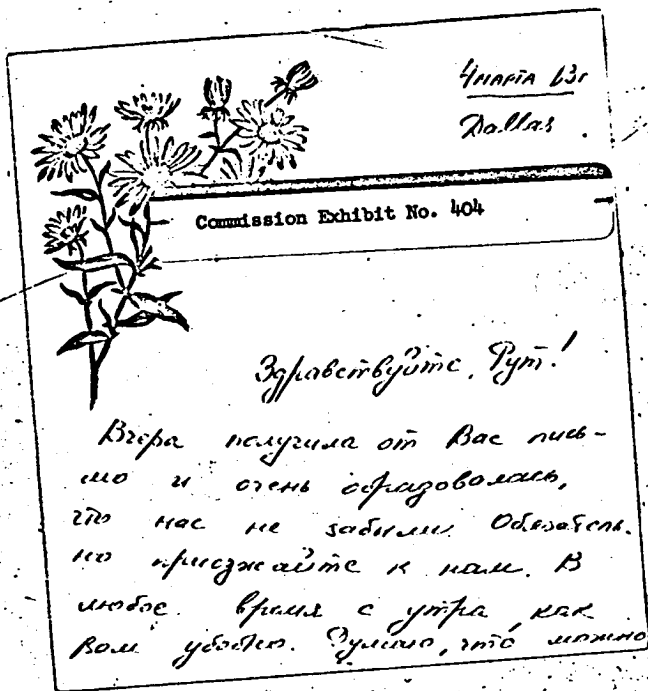 4 марта 63г
Dallas
Commission Exhibit No. 404
Здравствуйте, Рут!
Вчера получила от Вас пись-
мо и очень обрадовалась,
что нас не забыли. Обязатель-
но приезжайте к нам. В
любое время с утра, как
Вам удобно. Думаю, что можно